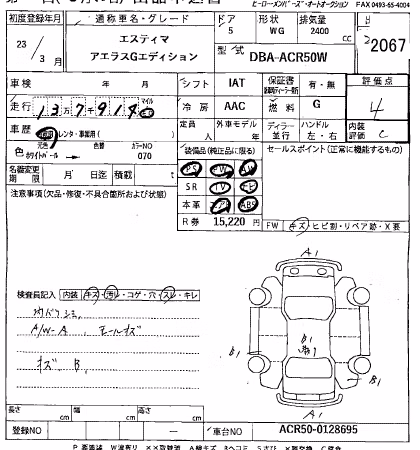 ヒーローメンバーズ・オートオークション FAX 0493-65-4004
初度登録年月 通称車名・グレード ドア 形状 排気量
23 / 3月 エスティマ 5 WG 2400 cc
アエラスGエディション 型式 DBA-ACR50W 2067
車検 年 月 日 シフト IAT 保証書 有・無 評価点
走行 137914 マイル km 冷房 AAC 燃料 G 4
車歴 レンタ・事業用( ) 定員 人 外車モデル 年 ディーラー 並行 ハンドル 左・右 内装評価 C
元色 色替 カラーNO
色 ホワイトパール 070
装備品(純正品に限る) セールスポイント(正常に機能するもの)
名義変更期限 月 日迄 積載 t
PS PW AW
SR TV ナビ
本革 エアB ABS
R券 15,220 円
注意事項(欠品・修復・不具合箇所および状態)
FW キズ・ヒビ割・リペア跡・X要
検査員記入 内装 キズ・汚レ・コゲ・穴・スレ・キレ
内ドラシミ
A/W-A モールキズ
キズ B,
A1
B1
B1
B1
A1
長さ cm 幅 cm 高さ cm
登録NO — 車台NO ACR50-0128695